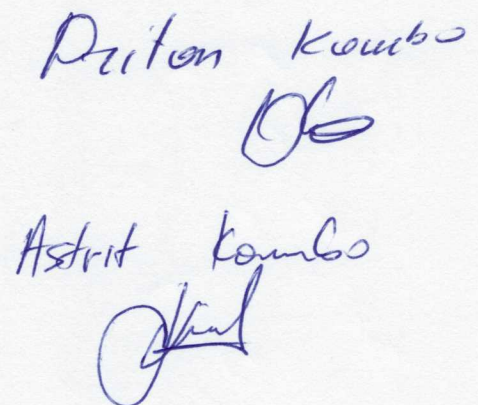 Driton Kambo
Astrit Kambo